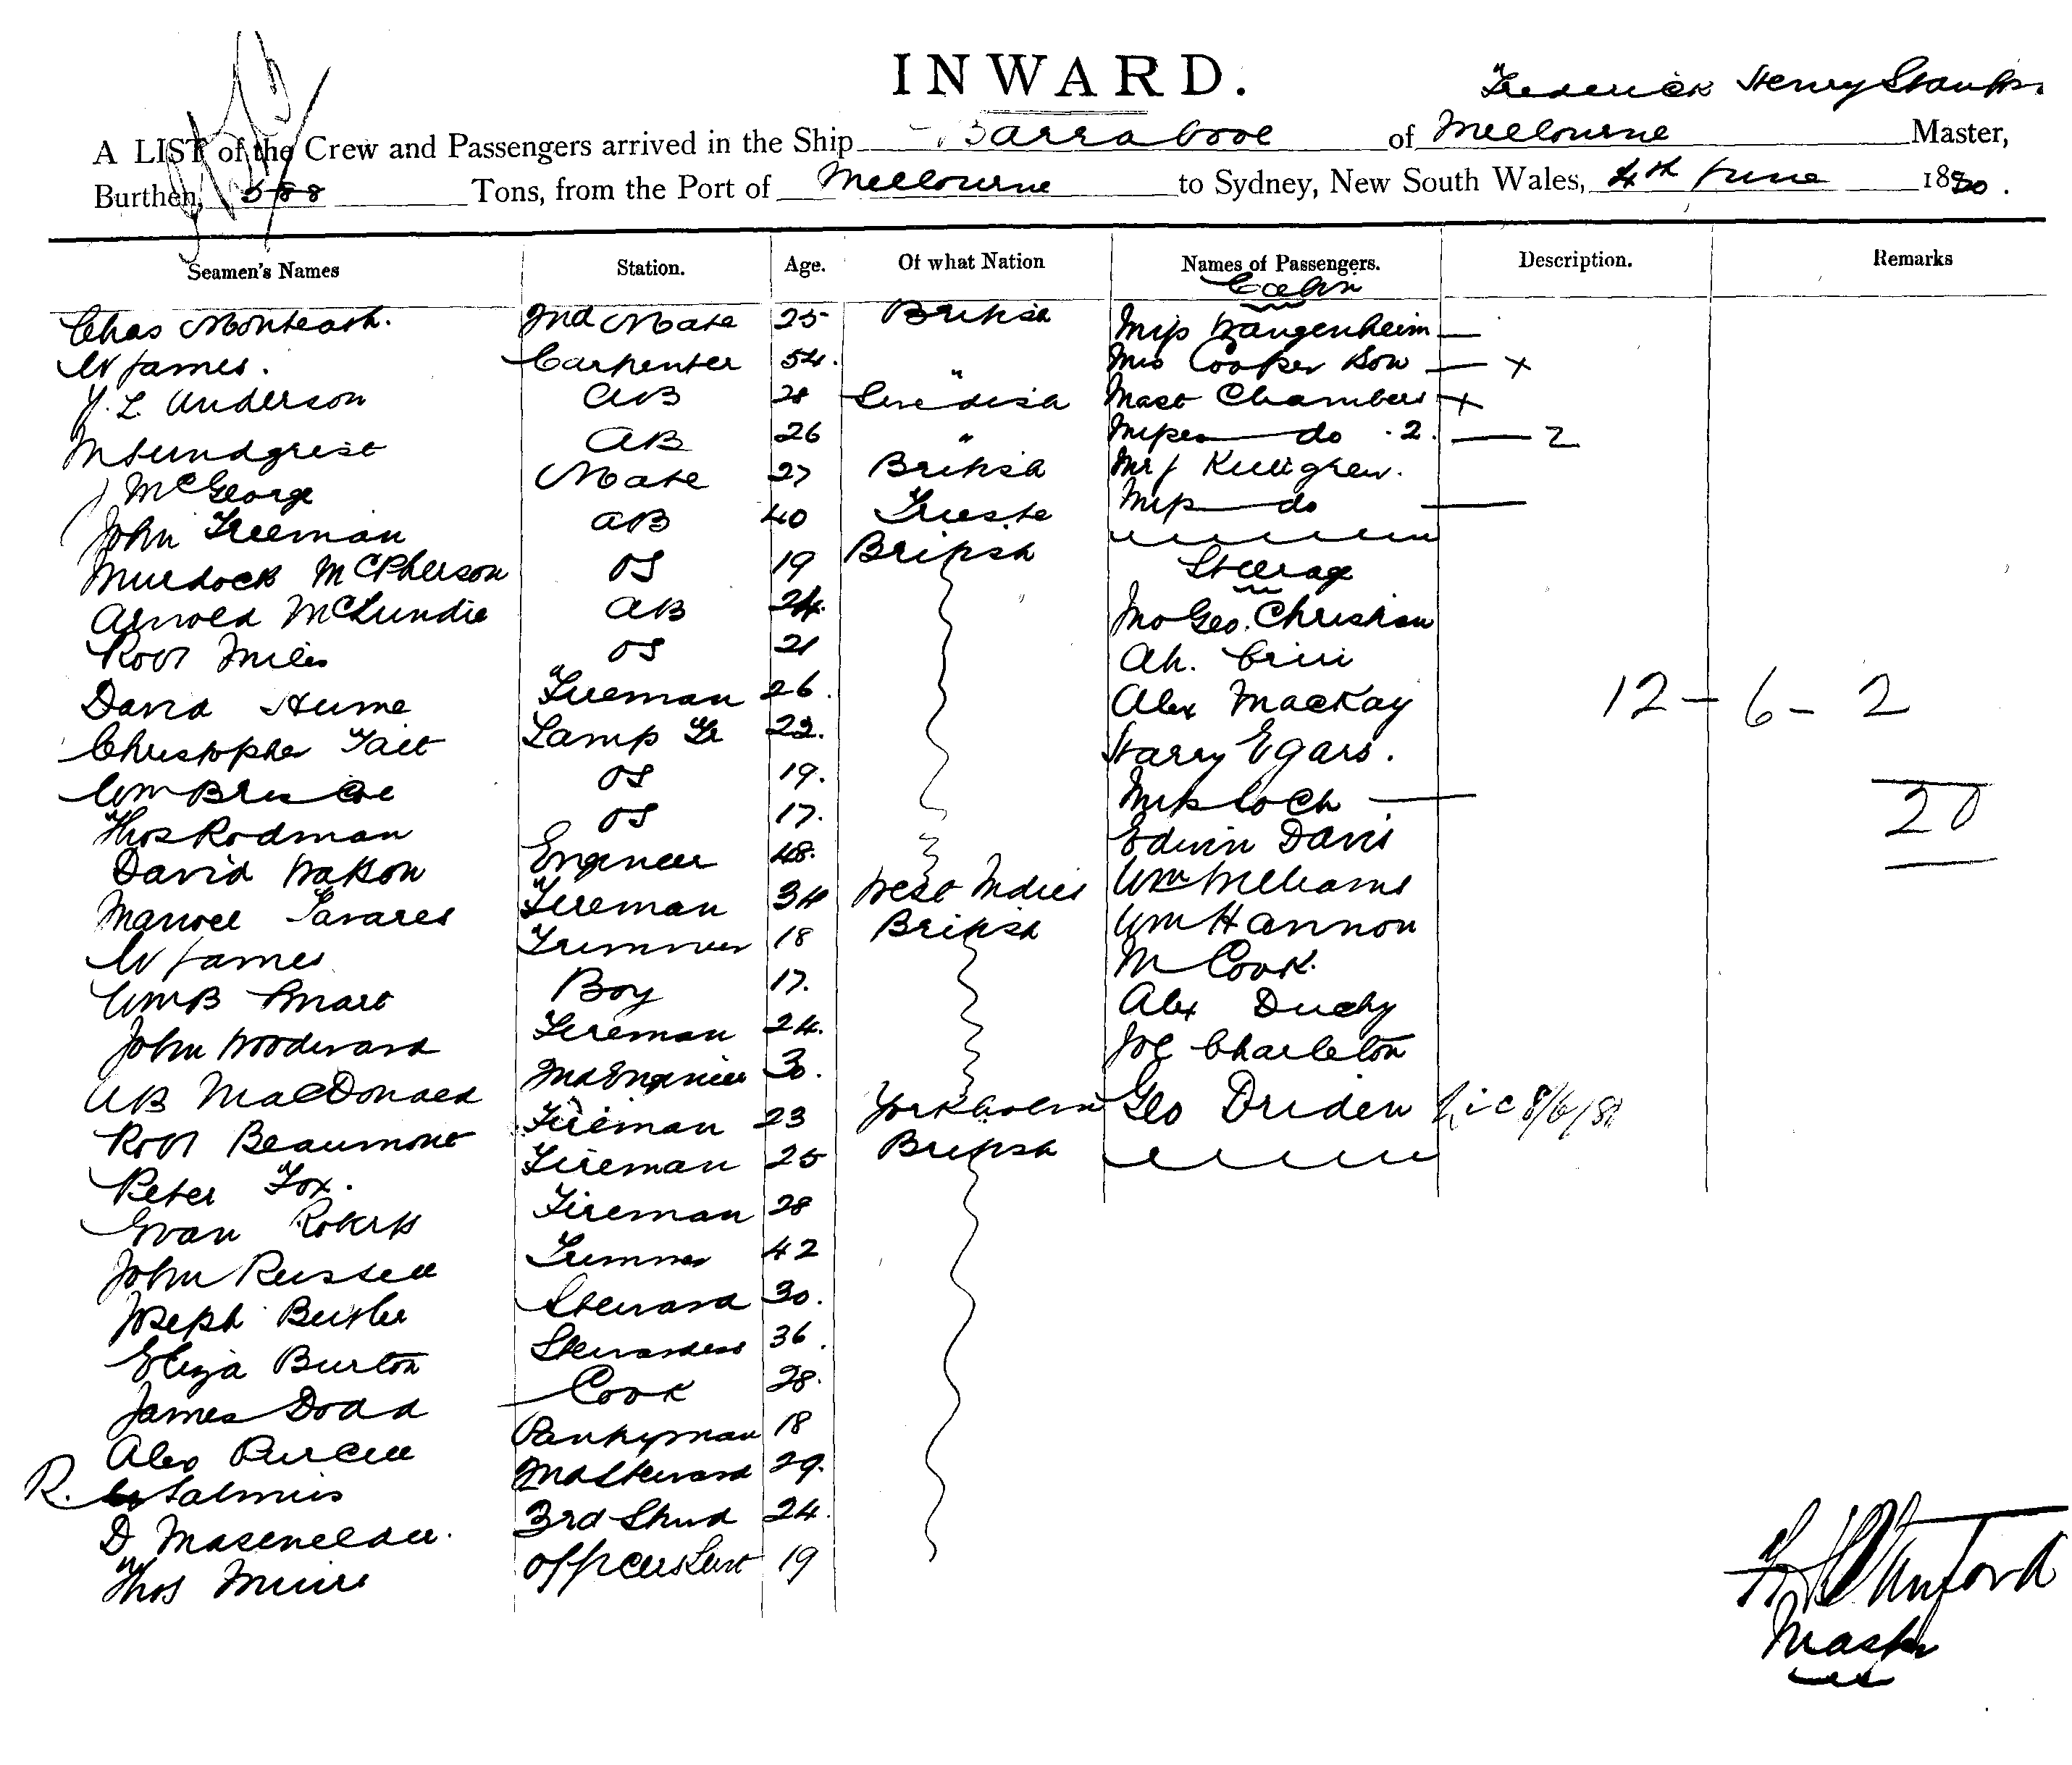 INWARD.
Frederick Henry
A LIST of the Crew and Passengers arrived in the Ship Barrabool of Melbourne Master,
Burthen, 588 Tons, from the Port of Melbourne to Sydney, New South Wales, 4th June 1880.
Seamen's Names Station. Age. Of what Nation Names of Passengers. Description. Remarks
Cabin
Chas Monteath. 2nd Mate 25 British Miss Wangenheim —
W James. Carpenter 54. " Mrs Cooper Son — x
J. L Anderson AB 28 Swedish Mast Chambers x
M Lundgrist AB 26 " Misses do . 2. — 2
J McGeorge Mate 27 British Mr J Killigrew.
John Freeman AB 40 Trieste Miss do —
Murdock McPherson OS 19 British Steerage
Arnold McLundie AB 24. Geo. Christian
Robt Miles OS 21 Ah.
David Hume Fireman 26. Alex MacKay 12 - 6 - 2
Christopher Tait Lamp Tr 22. Harry Egars.
Wm Briscoe OS 19. Miss Loch — 20
Thos Rodman OS 17. Edwin Davis
David Watson Engineer 48. Wm Williams
Manoel Tavares Fireman 34 West Indies Wm Hannon
W James Trimmer 18 British M Cook.
Wm B Smart Boy 17. Alex Duchy
John Woodward Fireman 24. Joe Charleton
AB MacDonald 2nd Engineer 30. Geo Driden
Robt Beaumont Fireman 23
Peter Fox. Fireman 25 British
Evan Roberts Fireman 28
John Russell Trimmer 42
Joseph Butler Steward 30.
Eliza Burton Stewardess 36.
James Dodd Cook 28.
Alex Purcell Pantryman 18
R. Salmins 2nd Steward 29.
D 3rd Stwd 24.
Thos Muire Officers Servt 19
F H Stanford
Master